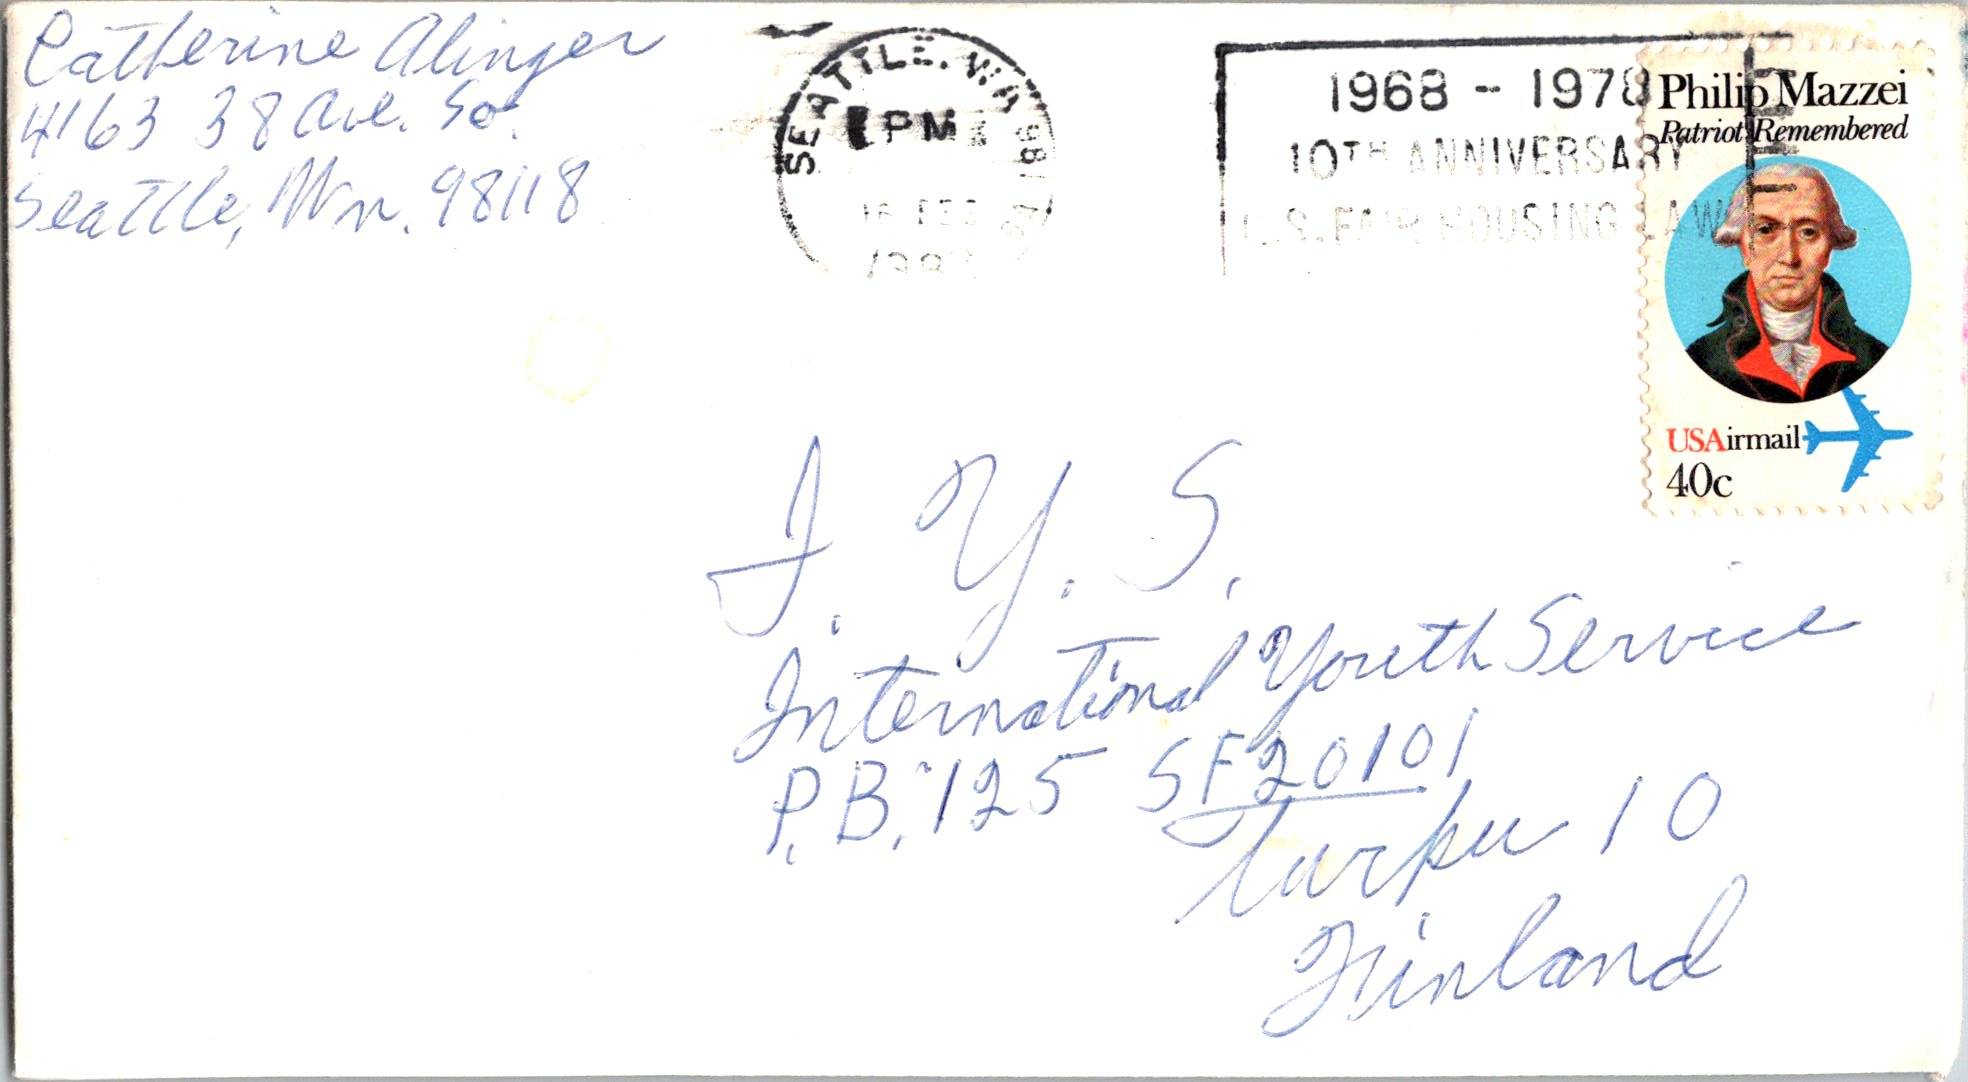 Catherine Alinger
4163 38 Ave. So.
Seattle, Wn. 98118
SEATTLE, WA 981
PM
16 FEB
1968 - 1978
10TH ANNIVERSARY
U.S. FAIR HOUSING LAW
Philip Mazzei
Patriot Remembered
USAirmail
40c
I. Y. S.
International Youth Service
P.B. 125 SF20101
Turku 10
Finland